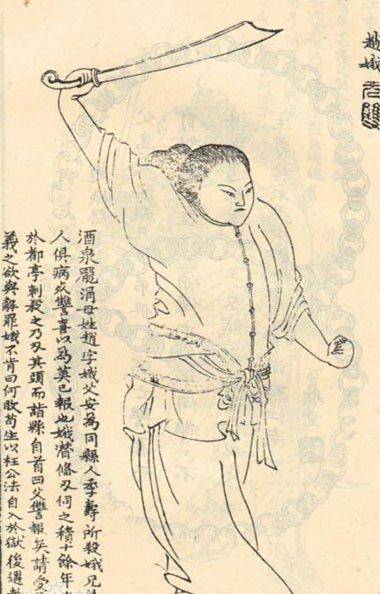 趙娥
酒泉龐涓母姓趙字娥父安為同縣人李壽所殺娥兄
人俱病死讐喜以為莫己報也娥潛脩刃伺之積十餘年
於都亭刺殺之乃刃其頭而詣縣自首曰父讐報矣請受
義之欲與解罪娥不肯曰何敢苟生以枉公法自入於獄後遇